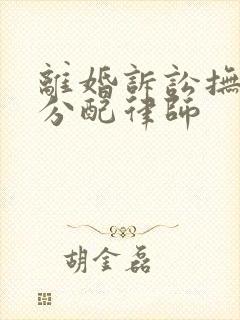 離婚訴訟撫
分配律師
胡金磊